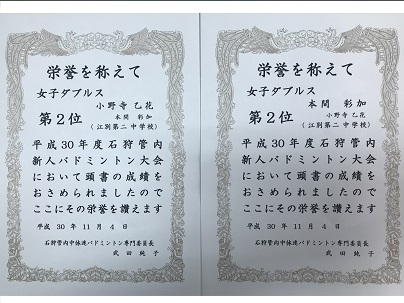 栄誉を称えて
女子ダブルス
小野寺 乙花
第２位
本間 彩加
(江別第二中学校)
平成３０年度石狩管内
新人バドミントン大会
において頭書の成績を
おさめられましたので
ここにその栄誉を讃えます
平成 30 年 11 月 4 日
石狩管内中体連バドミントン専門委員長
武田 純子
栄誉を称えて
女子ダブルス
本間 彩加
第２位
小野寺 乙花
(江別第二中学校)
平成３０年度石狩管内
新人バドミントン大会
において頭書の成績を
おさめられましたので
ここにその栄誉を讃えます
平成 30 年 11 月 4 日
石狩管内中体連バドミントン専門委員長
武田 純子